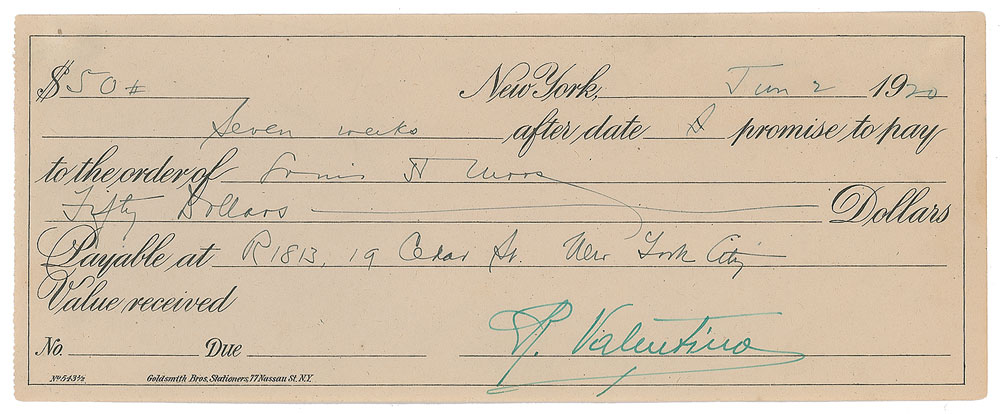 $50 # New York, Jun 2 1920
Seven weeks after date I promise to pay
to the order of Louis H Moos
Fifty Dollars Dollars
Payable at R1813, 19 Cedar St. New York City
Value received
No. Due R. Valentino
No 543½ Goldsmith Bros. Stationers, 77 Nassau St. N.Y.